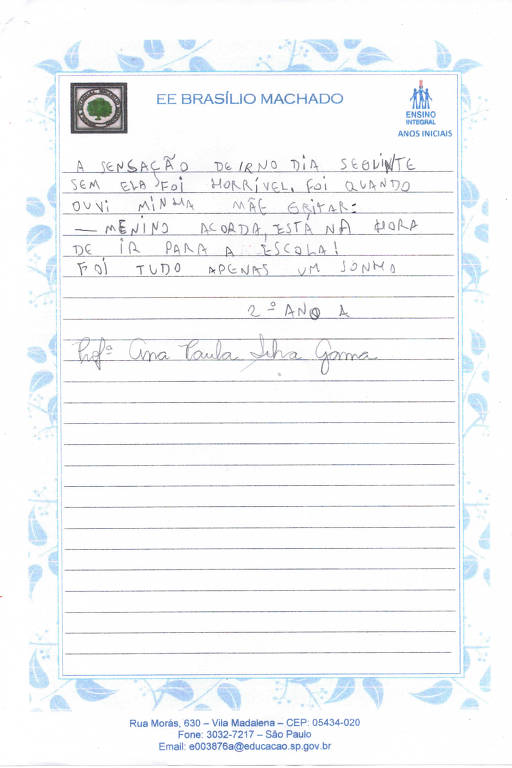 EE BRASÍLIO MACHADO
ENSINO
INTEGRAL
ANOS INICIAIS
A SENSAÇÃO DE IR NO DIA SEGUINTE
SEM ELA FOI HORRÍVEL. FOI QUANDO
OUVI MINHA MÃE GRITAR:
— MENINO ACORDA, ESTÁ NA HORA
DE IR PARA A ESCOLA!
FOI TUDO APENAS UM SONHO
2º ANO A
Profª Ana Paula Silva Gama
Rua Morás, 630 – Vila Madalena – CEP: 05434-020
Fone: 3032-7217 – São Paulo
Email: e003876a@educacao.sp.gov.br